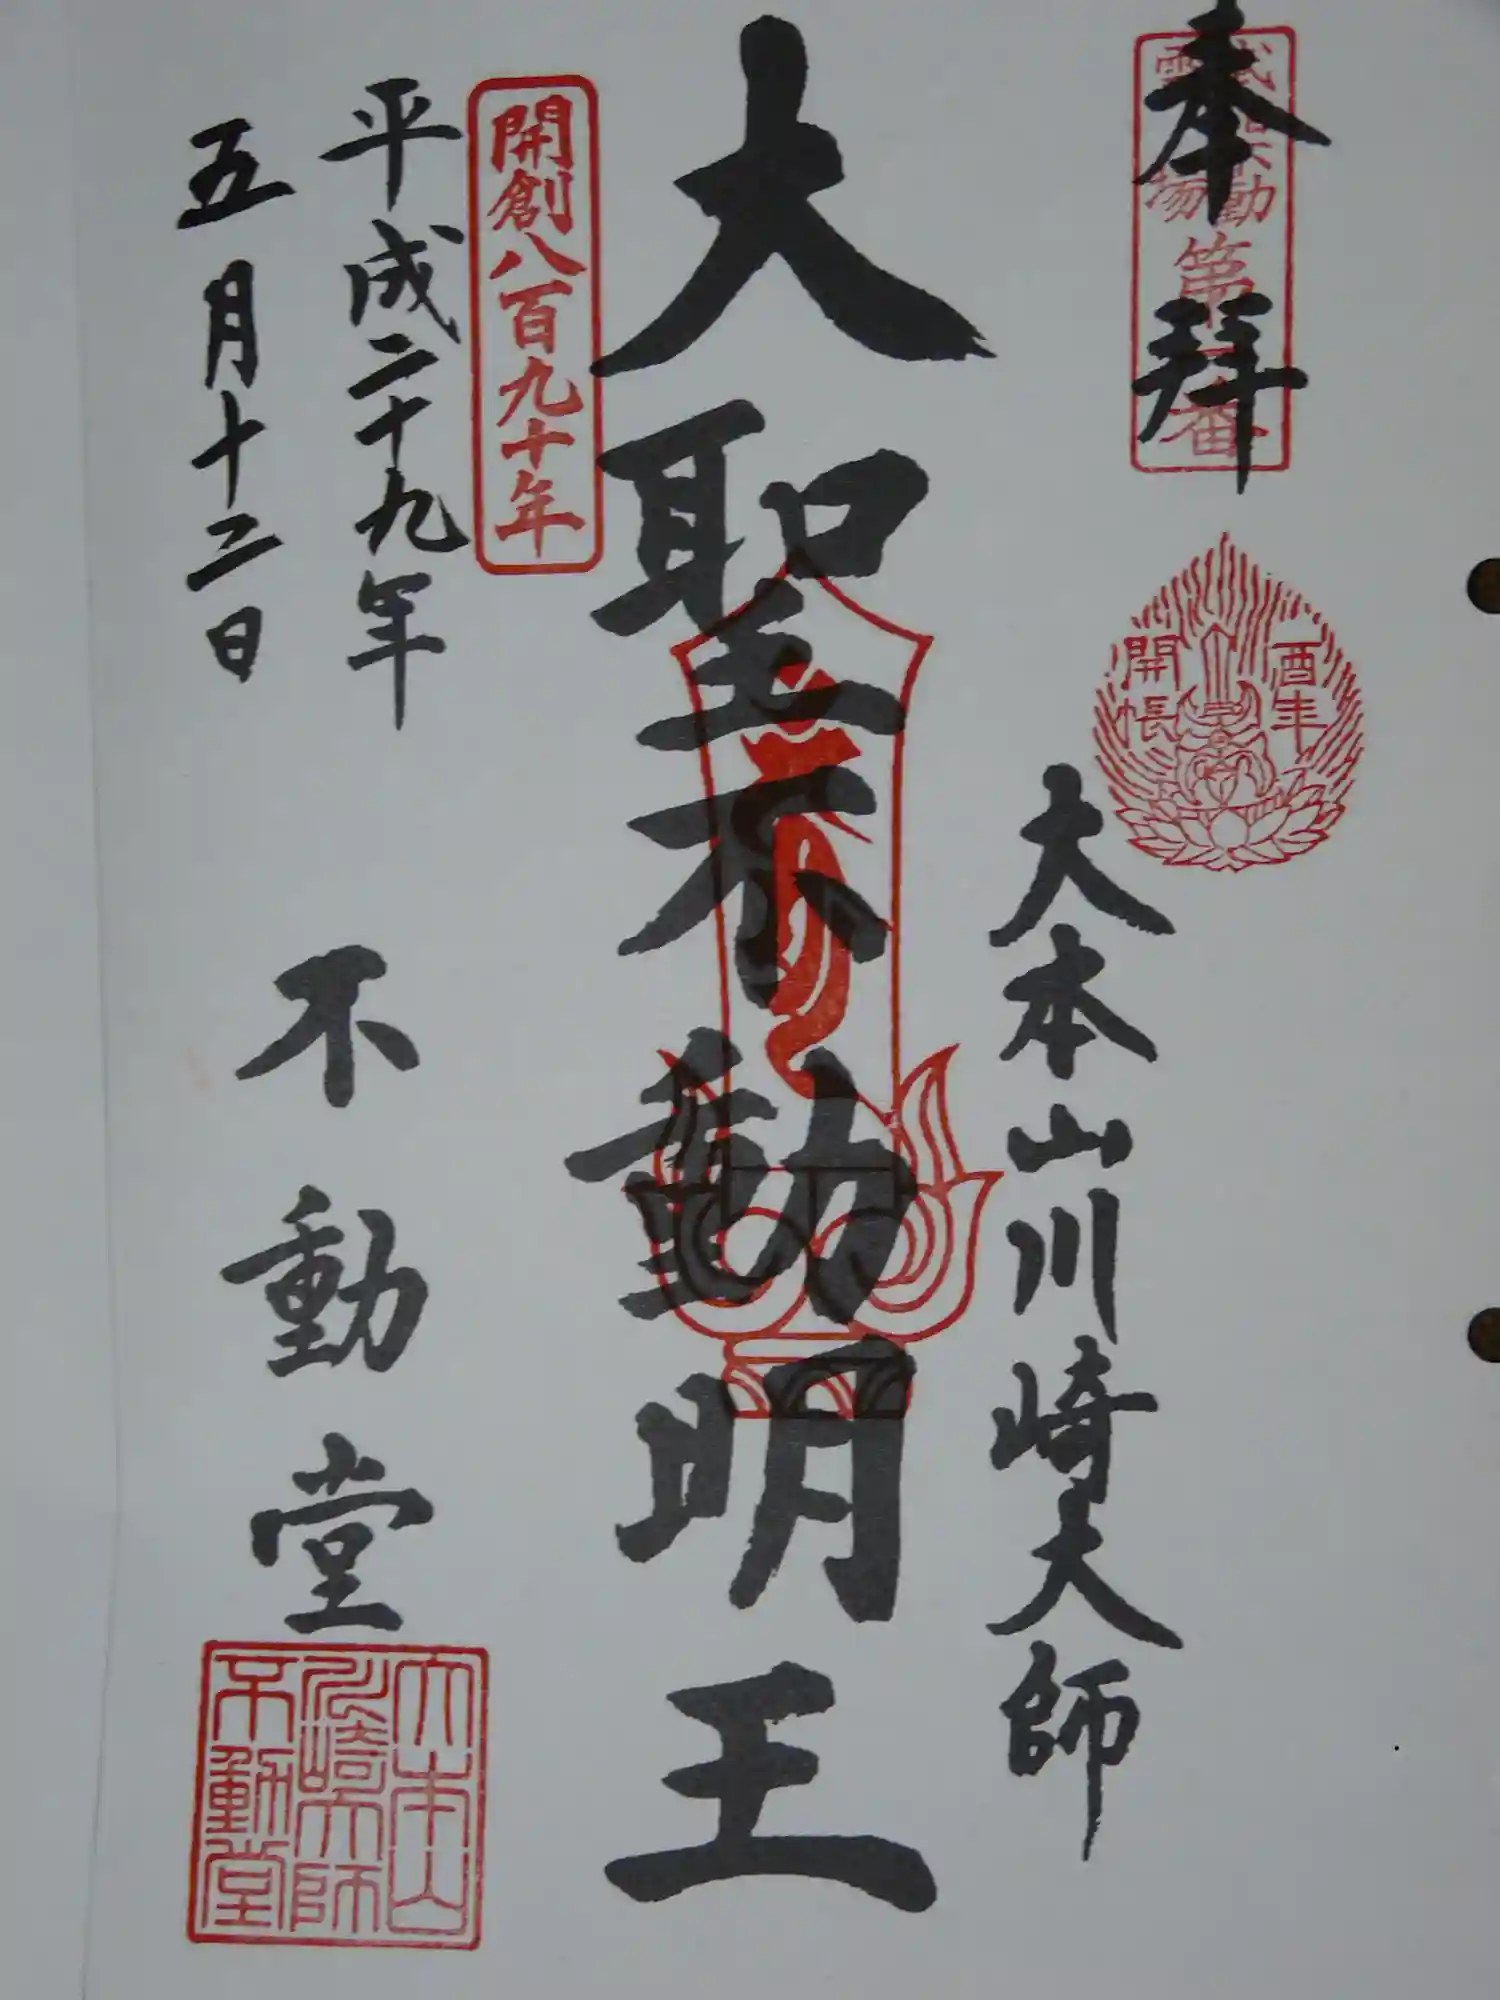 奉拜
第一番
酉年
開帳
大本山川崎大師
大聖不動明王
開創八百九十年
平成二十九年
五月十二日
不動堂
大本山
川崎大師
不動堂